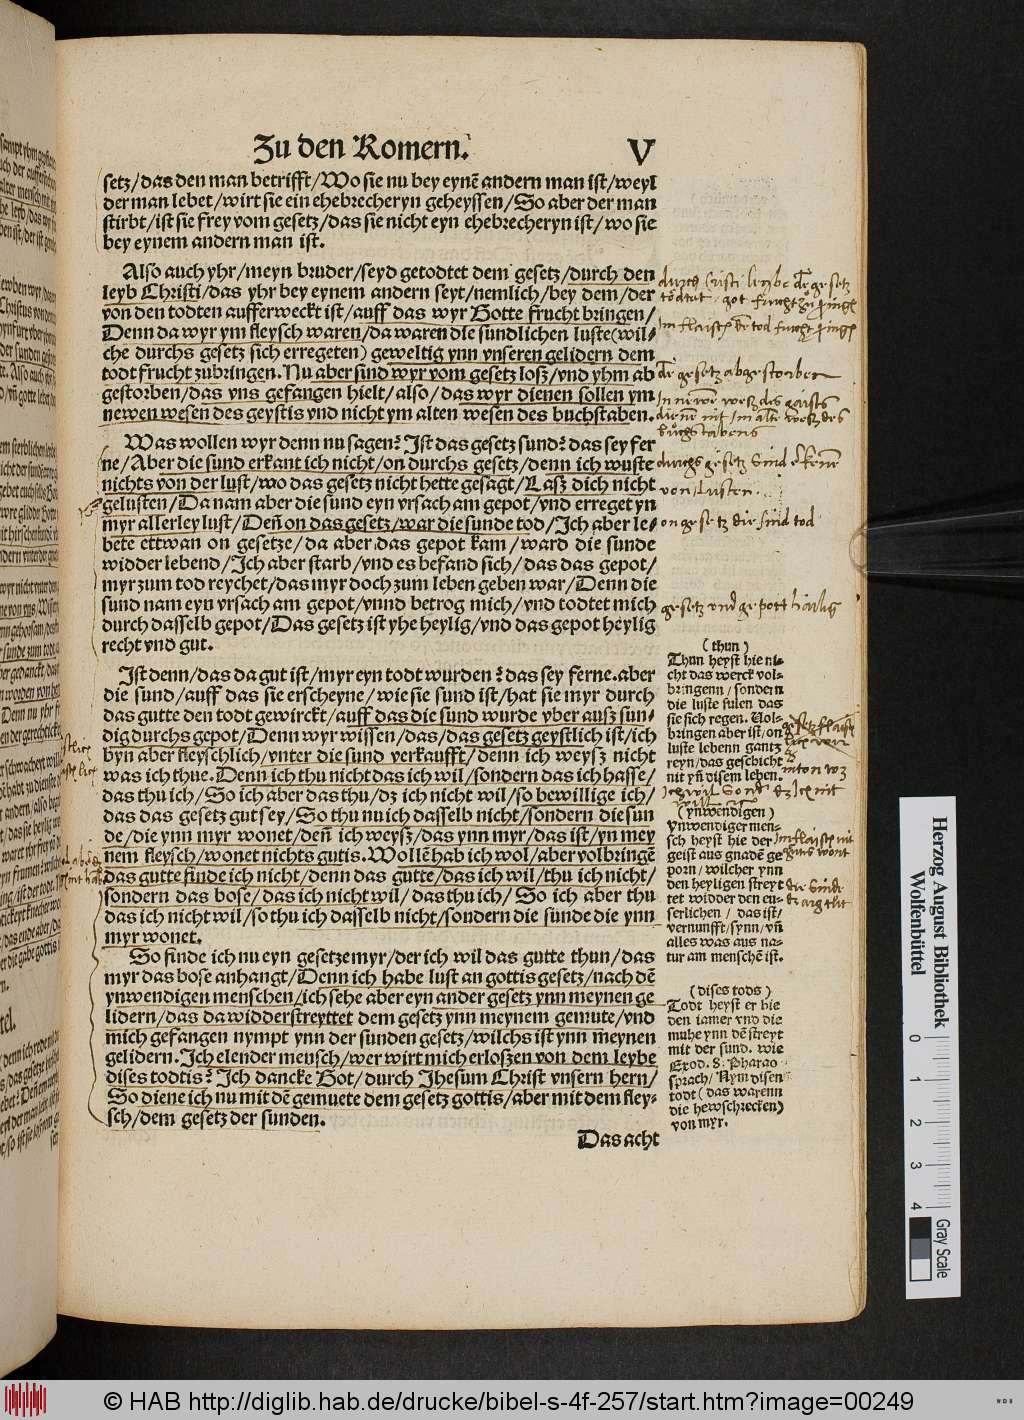 Zu den Romern. V
setz/das den man betrifft/Wo sie nu bey eynē andern man ist/weyl
der man lebet/wirt sie ein ehebrecheryn geheyssen/So aber der man
stirbt/ist sie frey vom gesetz/das sie nicht eyn ehebrecheryn ist/wo sie
bey eynem andern man ist.
Also auch yhr/meyn bruder/seyd getodtet dem gesetz/durch den
leyb Christi/das yhr bey eynem andern seyt/nemlich/bey dem/der
von den todten aufferweckt ist/auff das wyr Gotte frucht bringen/
Denn da wyr ym fleysch waren/da waren die sundlichen luste(wil-
che durchs gesetz sich erregeten) geweltig ynn vnseren gelidern dem
todt frucht zubringen. Nu aber sind wyr vom gesetz losz/vnd yhm ab
gestorben/das vns gefangen hielt/also/das wyr dienen sollen ym
newen wesen des geystis vnd nicht ym alten wesen des buchstaben.
Was wollen wyr denn nu sagen? Ist das gesetz sund? das sey fer
ne/Aber die sund erkant ich nicht/on durchs gesetz/denn ich wuste
nichts von der lust/wo das gesetz nicht hette gesagt/Lasz dich nicht
gelusten/Da nam aber die sund eyn vrsach am gepot/vnd erreget yn
myr allerley lust/Deñ on das gesetz/war die sunde tod/Ich aber le-
bete ettwan on gesetze/da aber das gepot kam/ward die sunde
widder lebend/Ich aber starb/vnd es befand sich/das das gepot/
myr zum tod reychet/das myr doch zum leben geben war/Denn die
sund nam eyn vrsach am gepot/vnnd betrog mich/vnd todtet mich
durch dasselb gepot/Das gesetz ist yhe heylig/vnd das gepot heylig
recht vnd gut.
Ist denn/das da gut ist/myr eyn todt wurden? das sey ferne. aber
die sund/auff das sie erscheyne/wie sie sund ist/hat sie myr durch
das gutte den todt gewirckt/auff das die sund wurde vber ausz sun-
dig durchs gepot/Denn wyr wissen/das/das gesetz geystlich ist/ich
byn aber fleyschlich/vnter die sund verkaufft/denn ich weysz nicht
was ich thue. Denn ich thu nicht das ich wil/sondern das ich hasse/
das thu ich/So ich aber das thu/dz ich nicht wil/so bewillige ich/
das das gesetz gut sey/So thu nu ich dasselb nicht/sondern die sun
de/die ynn myr wonet/deñ ich weysz/das ynn myr/das ist/yn mey
nem fleysch/wonet nichts gutis. Wollē hab ich wol/aber volbringē
das gutte finde ich nicht/denn das gutte/das ich wil/thu ich nicht/
sondern das bose/das ich nicht wil/das thu ich/So ich aber thu
das ich nicht wil/so thu ich dasselb nicht/sondern die sunde die ynn
myr wonet.
So finde ich nu eyn gesetze myr/der ich wil das gutte thun/das
myr das bose anhangt/Denn ich habe lust an gottis gesetz/nach dē
ynwendigen menschen/ich sehe aber eyn ander gesetz ynn meynen ge
lidern/das da widderstreyttet dem gesetz ynn meynem gemute/vnd
mich gefangen nympt ynn der sunden gesetz/wilchs ist ynn meynen
gelidern. Ich elender mensch/wer wirt mich erloszen von dem leybe
dises todtis? Ich dancke Got/durch Jhesum Christ vnsern hern/
So diene ich nu mit dē gemuete dem gesetz gottis/aber mit dem fley-
sch/dem gesetz der sunden.
Das acht
(thun)
Thun heyst hie ni-
cht das werck vol-
bringenn/sondern
die luste fulen das
sie sich regen. Vol-
bringen aber ist/on
luste lebenn gantz
reyn/das geschicht
nit yñ disem leben.
(ynwendigen)
Ynwendiger men-
sch heyst hie der
geist aus gnadē ge
porn/wilcher ynn
den heyligen streyt
tet widder den eu-
serlichen/das ist/
vernunfft/synn/vñ
alles was aus na-
tur am menschē ist.
(dises tods)
Todt heyst er hie
den iamer vnd die
muhe ynn dē streyt
mit der sund. wie
Exod. 8. Pharao
sprach/Nym disen
todt (das warenn
die hewschrecken)
von myr.
gesetz abgestorben
durchs gesetz Sind
von lusten
on gesetz die sind tod
gesetz vnd gepott hailig
Herzog August Bibliothek
Wolfenbüttel
0 1 2 3 4
Gray Scale
© HAB http://diglib.hab.de/drucke/bibel-s-4f-257/start.htm?image=00249